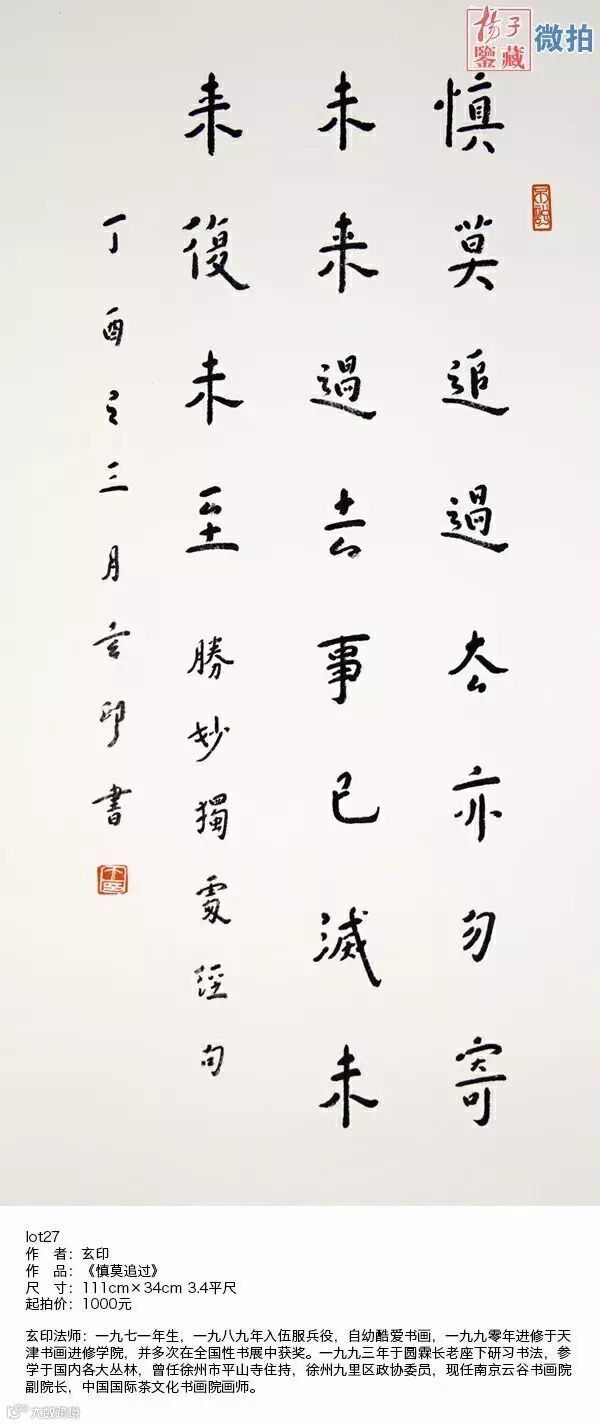 揚子
鑒藏
微拍
慎莫追過去亦勿寄
未来過去事已滅未
来復未至
勝妙獨處經句
丁酉之三月玄印書
lot27
作 者：玄印
作 品：《慎莫追过》
尺 寸：111cm×34cm 3.4平尺
起拍价：1000元
玄印法师：一九七一年生，一九八九年入伍服兵役，自幼酷爱书画，一九九零年进修于天
津书画进修学院，并多次在全国性书展中获奖。一九九三年于圆霖长老座下研习书法，参
学于国内各大丛林，曾任徐州市平山寺住持，徐州九里区政协委员，现任南京云谷书画院
副院长，中国国际茶文化书画院画师。
大数跨境